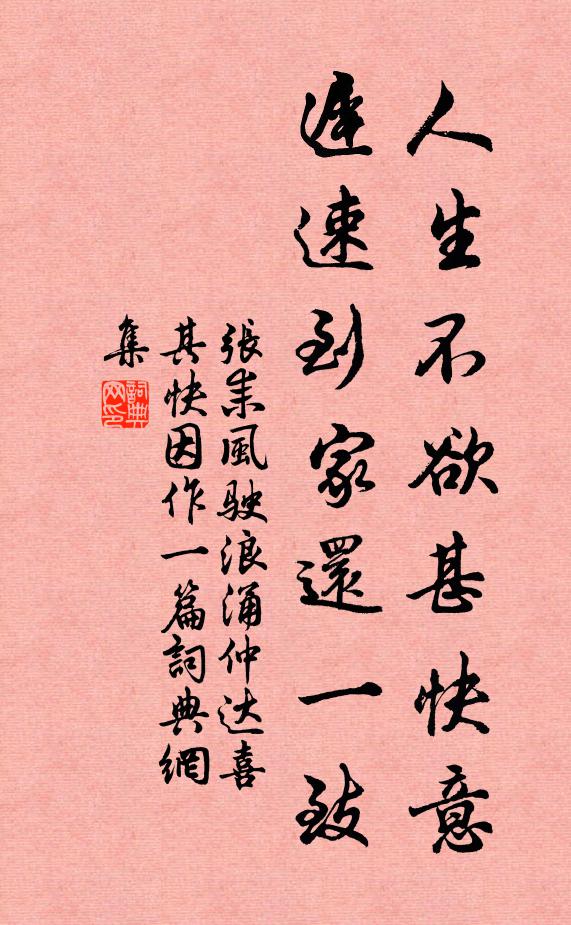 人生不欲甚快意
遲速到家還一致
張耒風駛浪涌仲达喜
其快因作一篇詞典網
集
詞典
网印